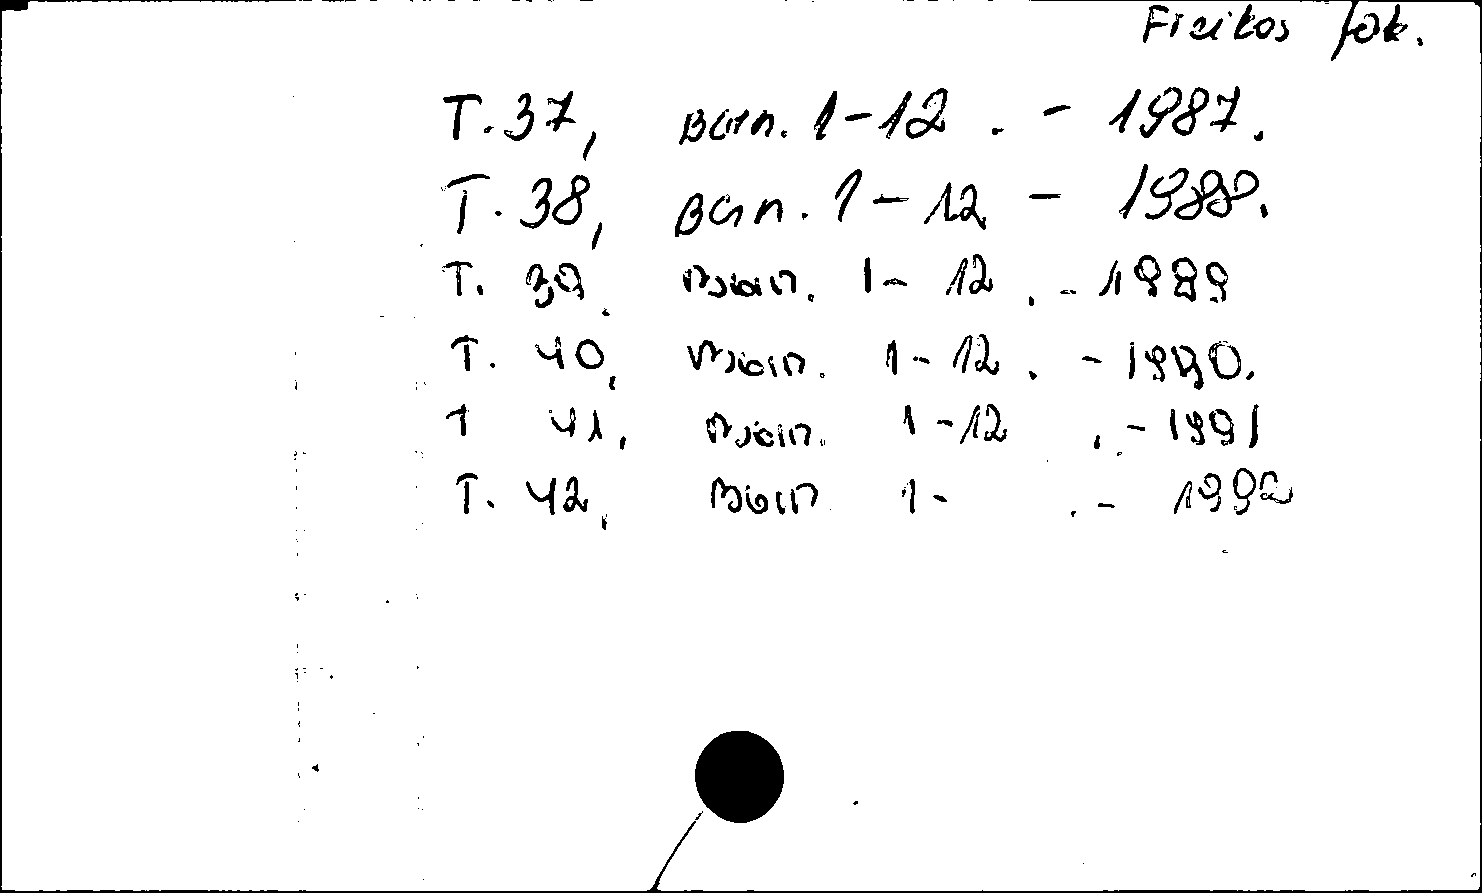 Fizikos fak.
T. 37, вып. 1-12. - 1987.
T. 38, вып. 1-12 - 1988.
T. 39. вып. 1-12. - 1989
T. 40, вып. 1-12. - 1990.
T 41, вып. 1-12. - 1991
T. 42, вып 1- . - 1992